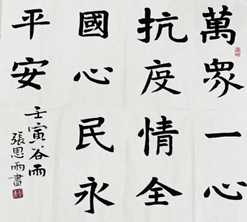 萬眾一心
抗疫情全
國心民永
平安
壬寅谷雨
張思雨書